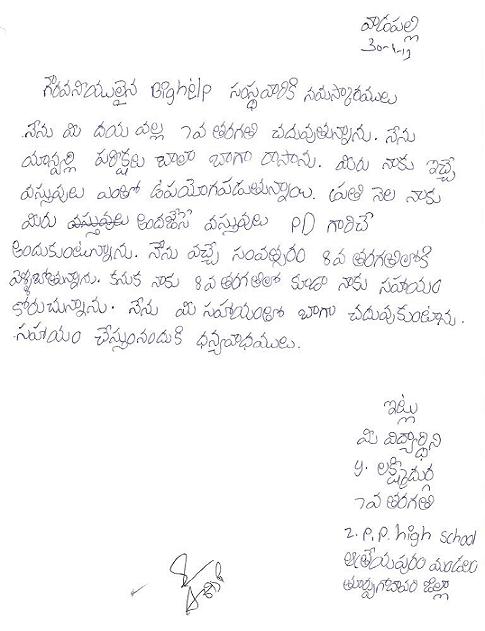 వాడపల్లి
30-1-13
గౌరవనియులైన Bighelp సంస్థవారికి నమస్కారములు
నేను మి దయ వల్ల 7వ తరగతి చదువుతున్నాను. నేను
యాన్వల్లి పరిక్షలు చాలా బాగా రాసాను. మిరు నాకు ఇచ్చే
వస్తువులు ఎంతో ఉపయోగపడుతున్నాయి. ప్రతి నెల నాకు
మిరు వస్తువులు అందజేసే వస్తువులు PD గారిచే
అందుకుంటున్నాను. నేను వచ్చే సంవత్సరం 8వ తరగతిలోకి
వెళ్ళబోతున్నాను. కనుక నాకు 8వ తరగతిలో కుడా నాకు సహాయం
కోరుచున్నాను. నేను మి సహాయంతో బాగా చదువుకుంటాను.
సహాయం చేస్తునందుకి ధన్యవాధములు.
ఇట్లు
మి విద్యార్థిని
y. లక్ష్మిదుర్గ
7వ తరగతి
Z.P.P. high school
ఆత్రేయపురం మండలం
తూర్పుగోదావరి జిల్లా